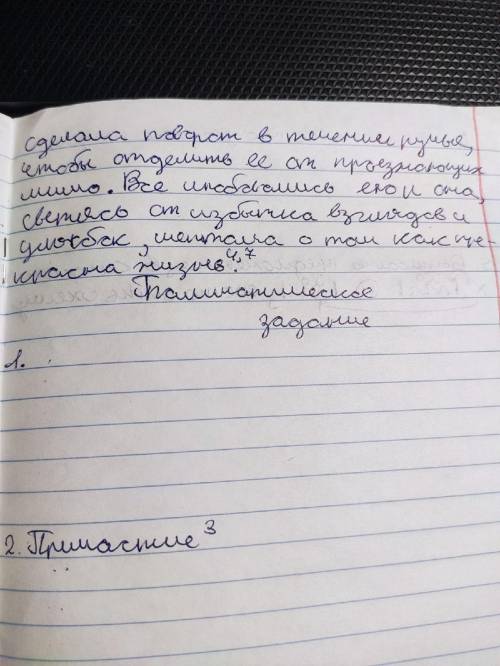 сделала поворот в течении ручья,
чтобы отделить ее от проезжающих
мимо. Все любовались ею и она,
светясь от избытка взглядов и
улыбок, шептала о том как пре-
красна жизнь⁴,⁷.
Грамматическое
задание
1.
2. Причастие³